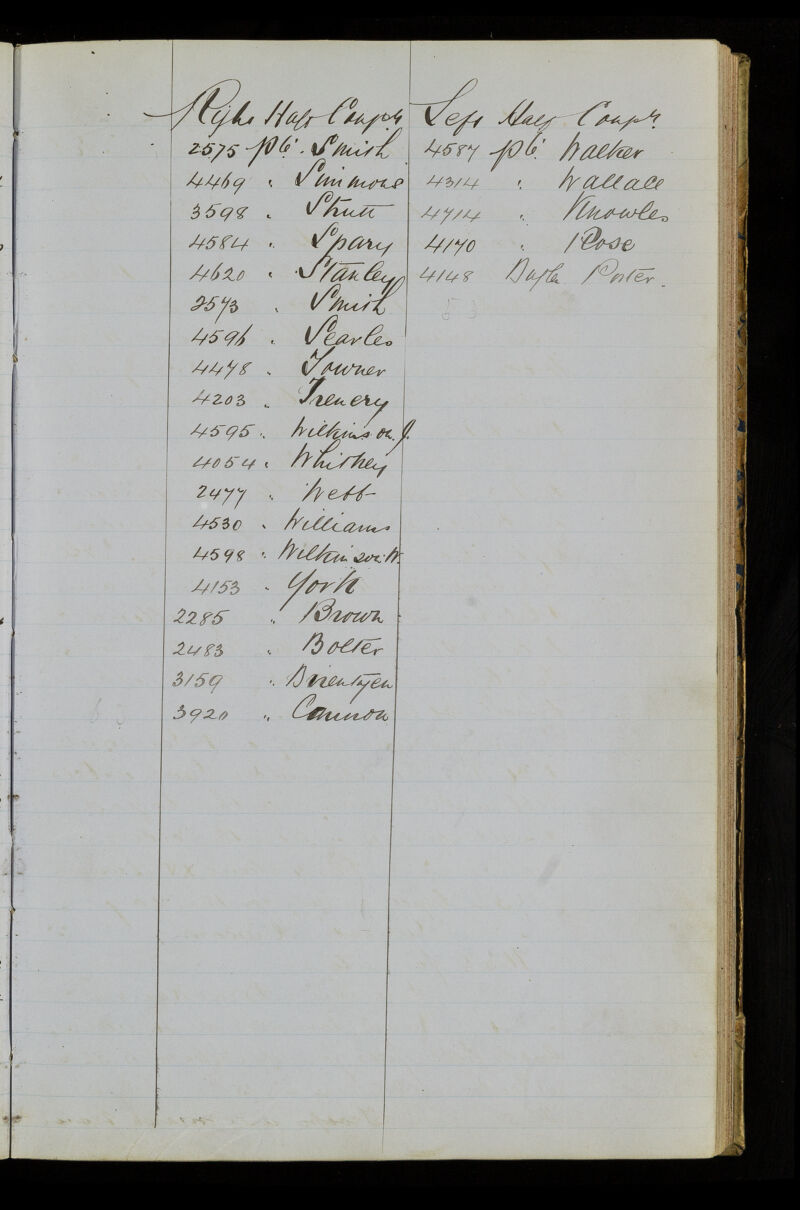 Right Half Compy.
2575 Pte. Smith
4469 " Simmons
3598 " Strutt
4584 " Spary
4620 " Stanley
2573 " Smith
4596 " Searles
4478 " Towner
4203 " Trenery
4595 " Wilkinson. J.
4054 " Whitney
2477 " Webb
4530 " Williams
4598 " Wilkinson. W.
4153 " York
2285 " Brown
2483 " Bolter
3159 "
3920 " Cannon
Left Half Compy.
4587 Pte. Walker
4314 " Wallace
4714 " Knowles
4170 " Rose
4148 Bugler Porter.